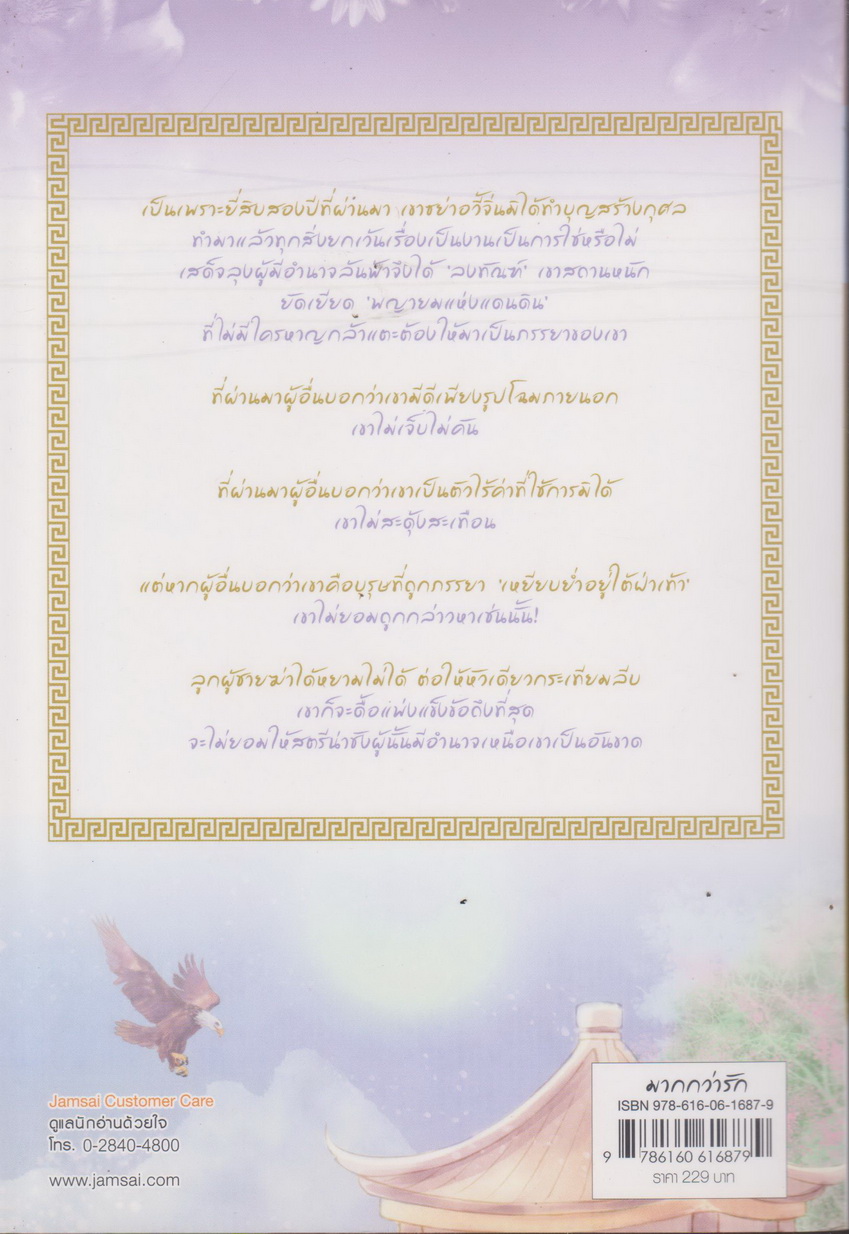 เป็นเพราะยี่สิบสองปีที่ผ่านมา เขาชย่าอวี้จิ่นมิได้ทำบุญสร้างกุศล
ทำมาแล้วทุกสิ่งยกเว้นเรื่องเป็นงานเป็นการใช่หรือไม่
เสด็จลุงผู้มีอำนาจล้นฟ้าจึงได้ 'ลงทัณฑ์' เขาสถานหนัก
ยัดเยียด 'พญายมแห่งแดนดิน'
ที่ไม่มีใครหาญกล้าแตะต้องให้มาเป็นภรรยาของเขา
ที่ผ่านมาผู้อื่นบอกว่าเขามีดีเพียงรูปโฉมภายนอก
เขาไม่เจ็บไม่คัน
ที่ผ่านมาผู้อื่นบอกว่าเขาเป็นตัวไร้ค่าที่ใช้การมิได้
เขาไม่สะดุ้งสะเทือน
แต่หากผู้อื่นบอกว่าเขาคือบุรุษที่ถูกภรรยา 'เหยียบย่ำอยู่ใต้ฝ่าเท้า'
เขาไม่ยอมถูกกล่าวหาเช่นนั้น!
ลูกผู้ชายฆ่าได้หยามไม่ได้ ต่อให้หัวเดียวกระเทียมลีบ
เขาก็จะดื้อแพ่งแข็งข้อถึงที่สุด
จะไม่ยอมให้สตรีน่าชังผู้นั้นมีอำนาจเหนือเขาเป็นอันขาด
Jamsai Customer Care
ดูแลนักอ่านด้วยใจ
โทร. 0-2840-4800
www.jamsai.com
มากกว่ารัก
ISBN 978-616-06-1687-9
9 786160 616879
ราคา 229 บาท